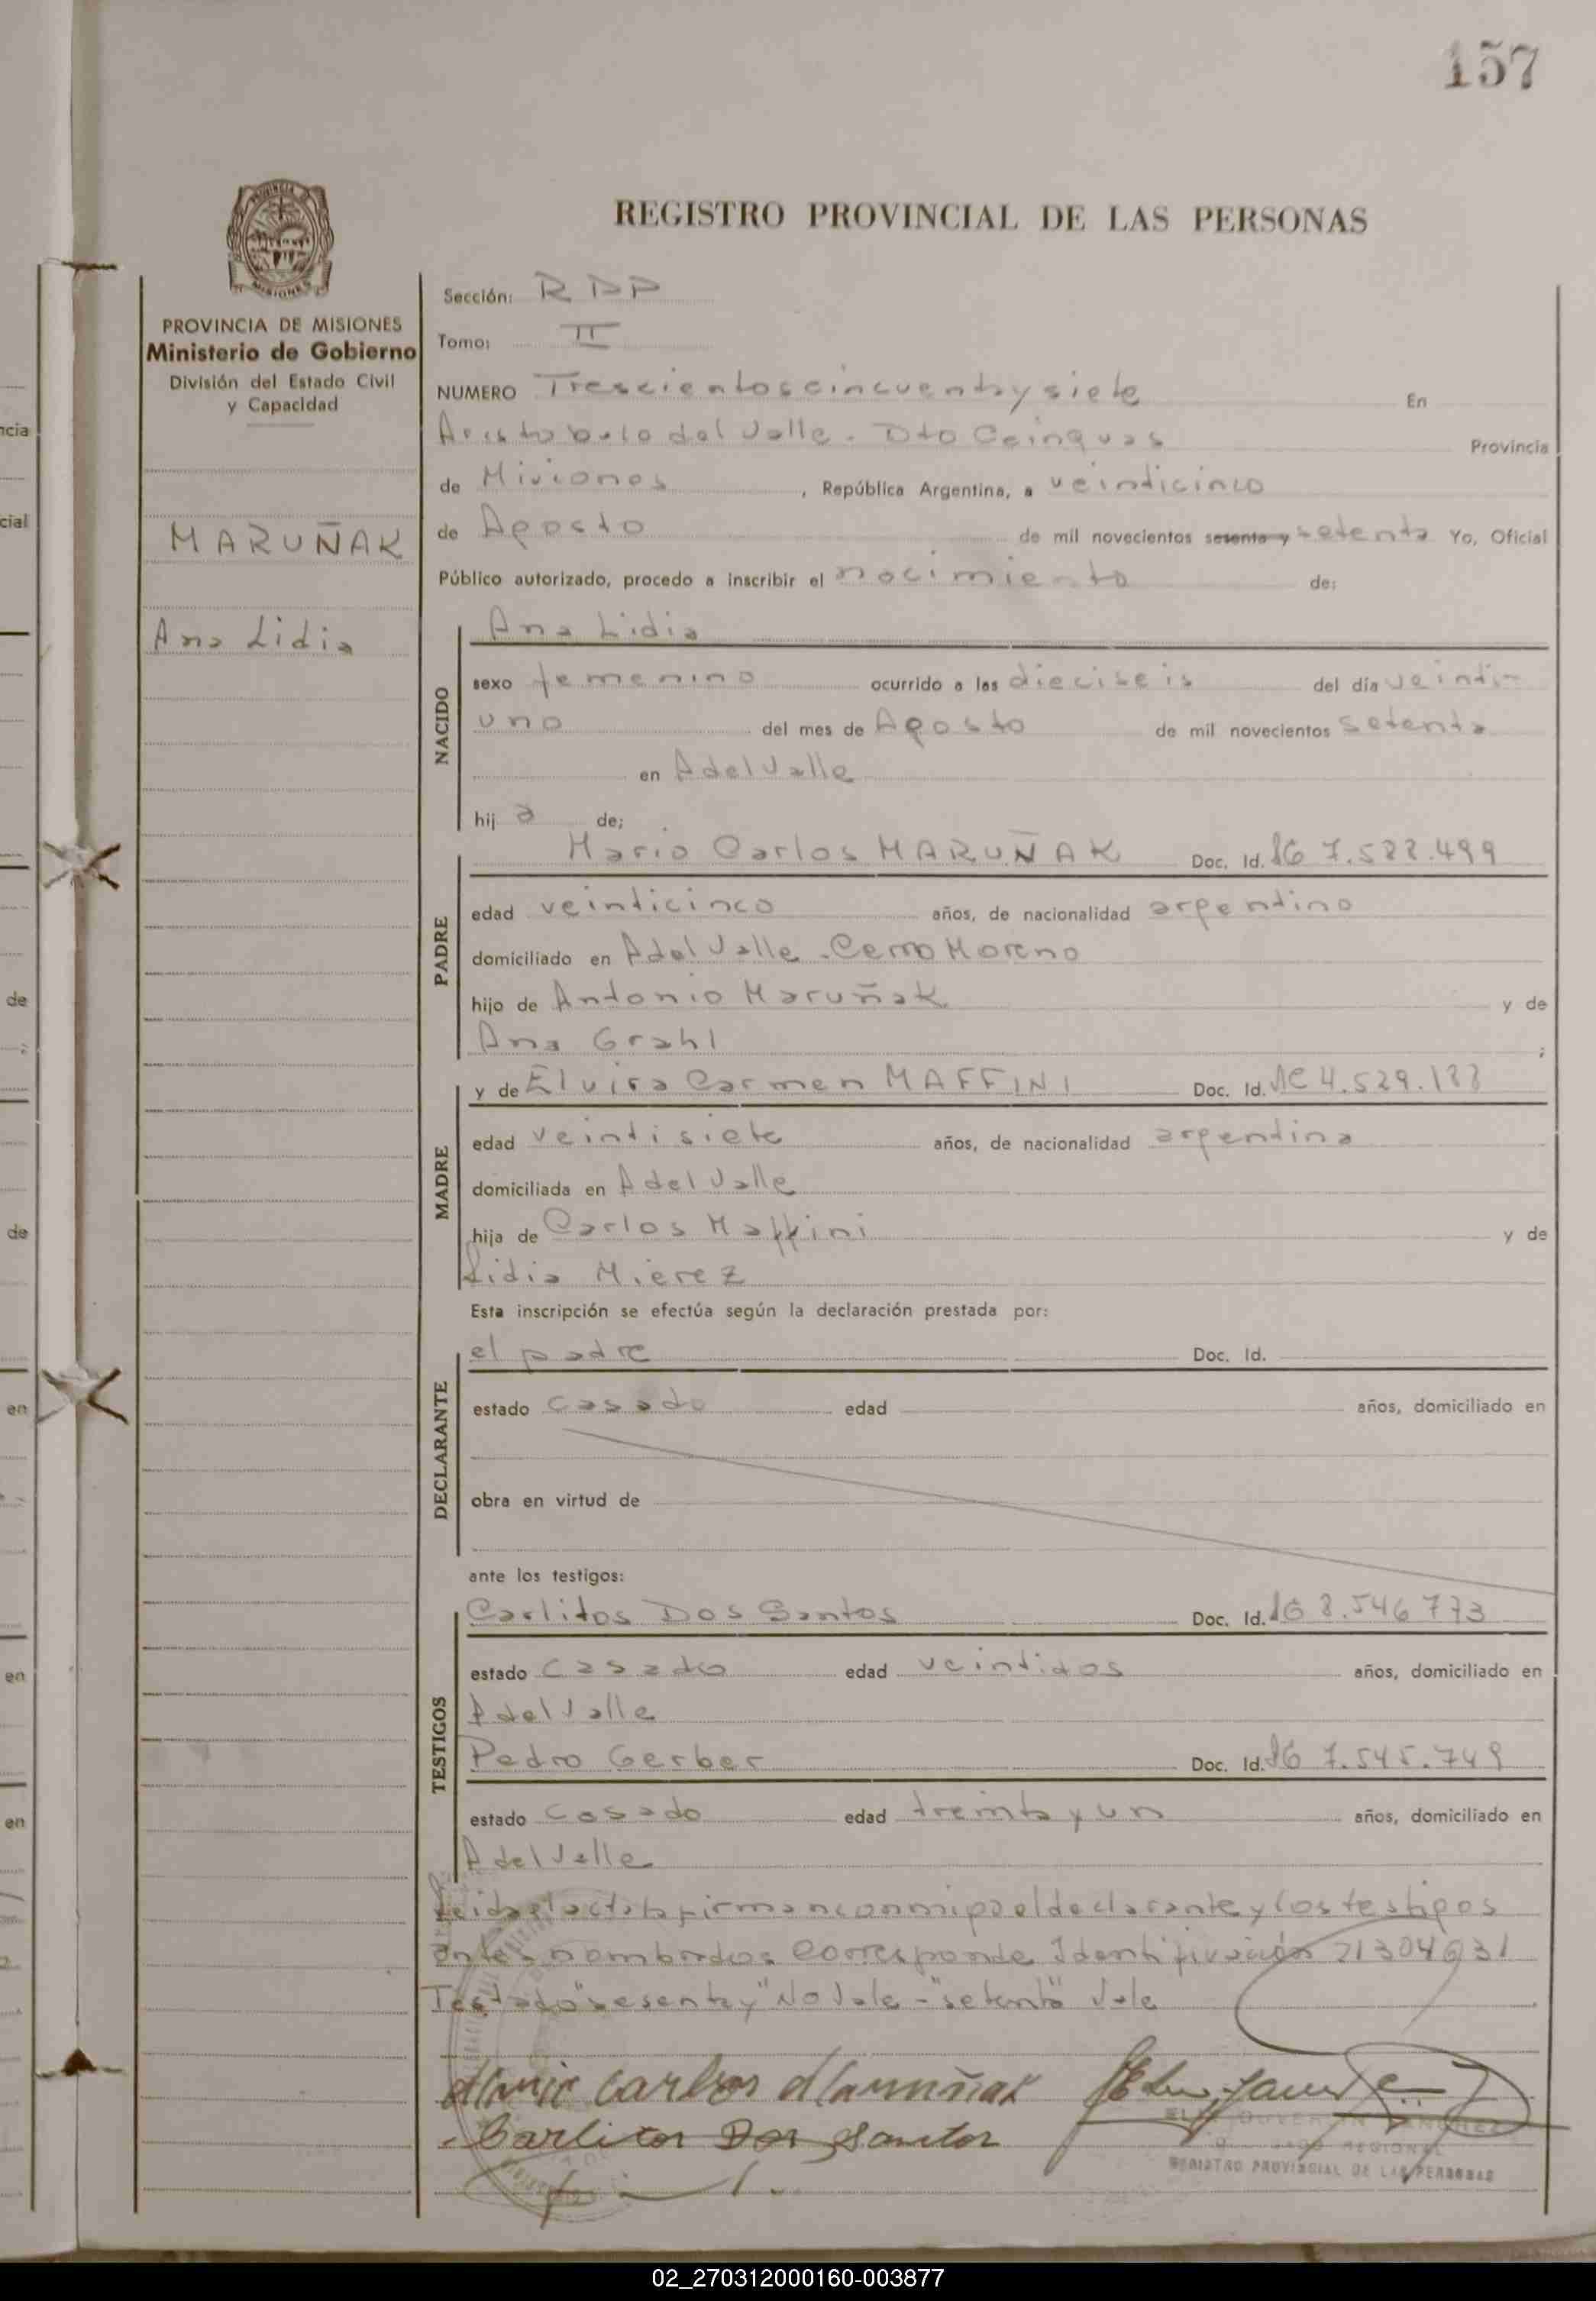 157
REGISTRO PROVINCIAL DE LAS PERSONAS
PROVINCIA DE MISIONES
Ministerio de Gobierno
División del Estado Civil
y Capacidad
MARUÑAK
Ana Lidia
Sección: RDP
Tomo: II
NUMERO Trescientos cincuenta y siete En
Aristobulo del Valle - Dto Cainguas Provincia
de Misiones, República Argentina, a veinticinco
de Agosto de mil novecientos sesenta y setenta Yo, Oficial
Público autorizado, procedo a inscribir el nacimiento de:
NACIDO
Ana Lidia
sexo femenino ocurrido a las dieciseis del día veinti-
uno del mes de Agosto de mil novecientos setenta
en A del Valle
hij a de;
PADRE
Mario Carlos MARUÑAK Doc. Id. 7.588.499
edad veinticinco años, de nacionalidad argentino
domiciliado en A del Valle - Cerro Moreno
hijo de Antonio Maruñak y de
Ana Grahl ;
MADRE
y de Elvira Carmen MAFFINI Doc. Id. 4.529.188
edad veintisiete años, de nacionalidad argentina
domiciliada en A del Valle
hija de Carlos Maffini y de
Lidia Mierez
Esta inscripción se efectúa según la declaración prestada por:
DECLARANTE
el padre Doc. Id.
estado casado edad años, domiciliado en
obra en virtud de
ante los testigos:
TESTIGOS
Carlitos Dos Santos Doc. Id. 8.546.773
estado casado edad veintidos años, domiciliado en
A del Valle
Pedro Gerber Doc. Id. 7.545.749
estado casado edad treinta y un años, domiciliado en
A del Valle
Leida el acta la firman conmigo el declarante y los testigos
antes nombrados. Corresponde Identificación 21304031
Testado "sesenta y" No Vale - "setenta" Vale
Mario Carlos Maruñak
Carlitos Dos Santos
REGIONAL
REGISTRO PROVINCIAL DE LAS PERSONAS
02_270312000160-003877